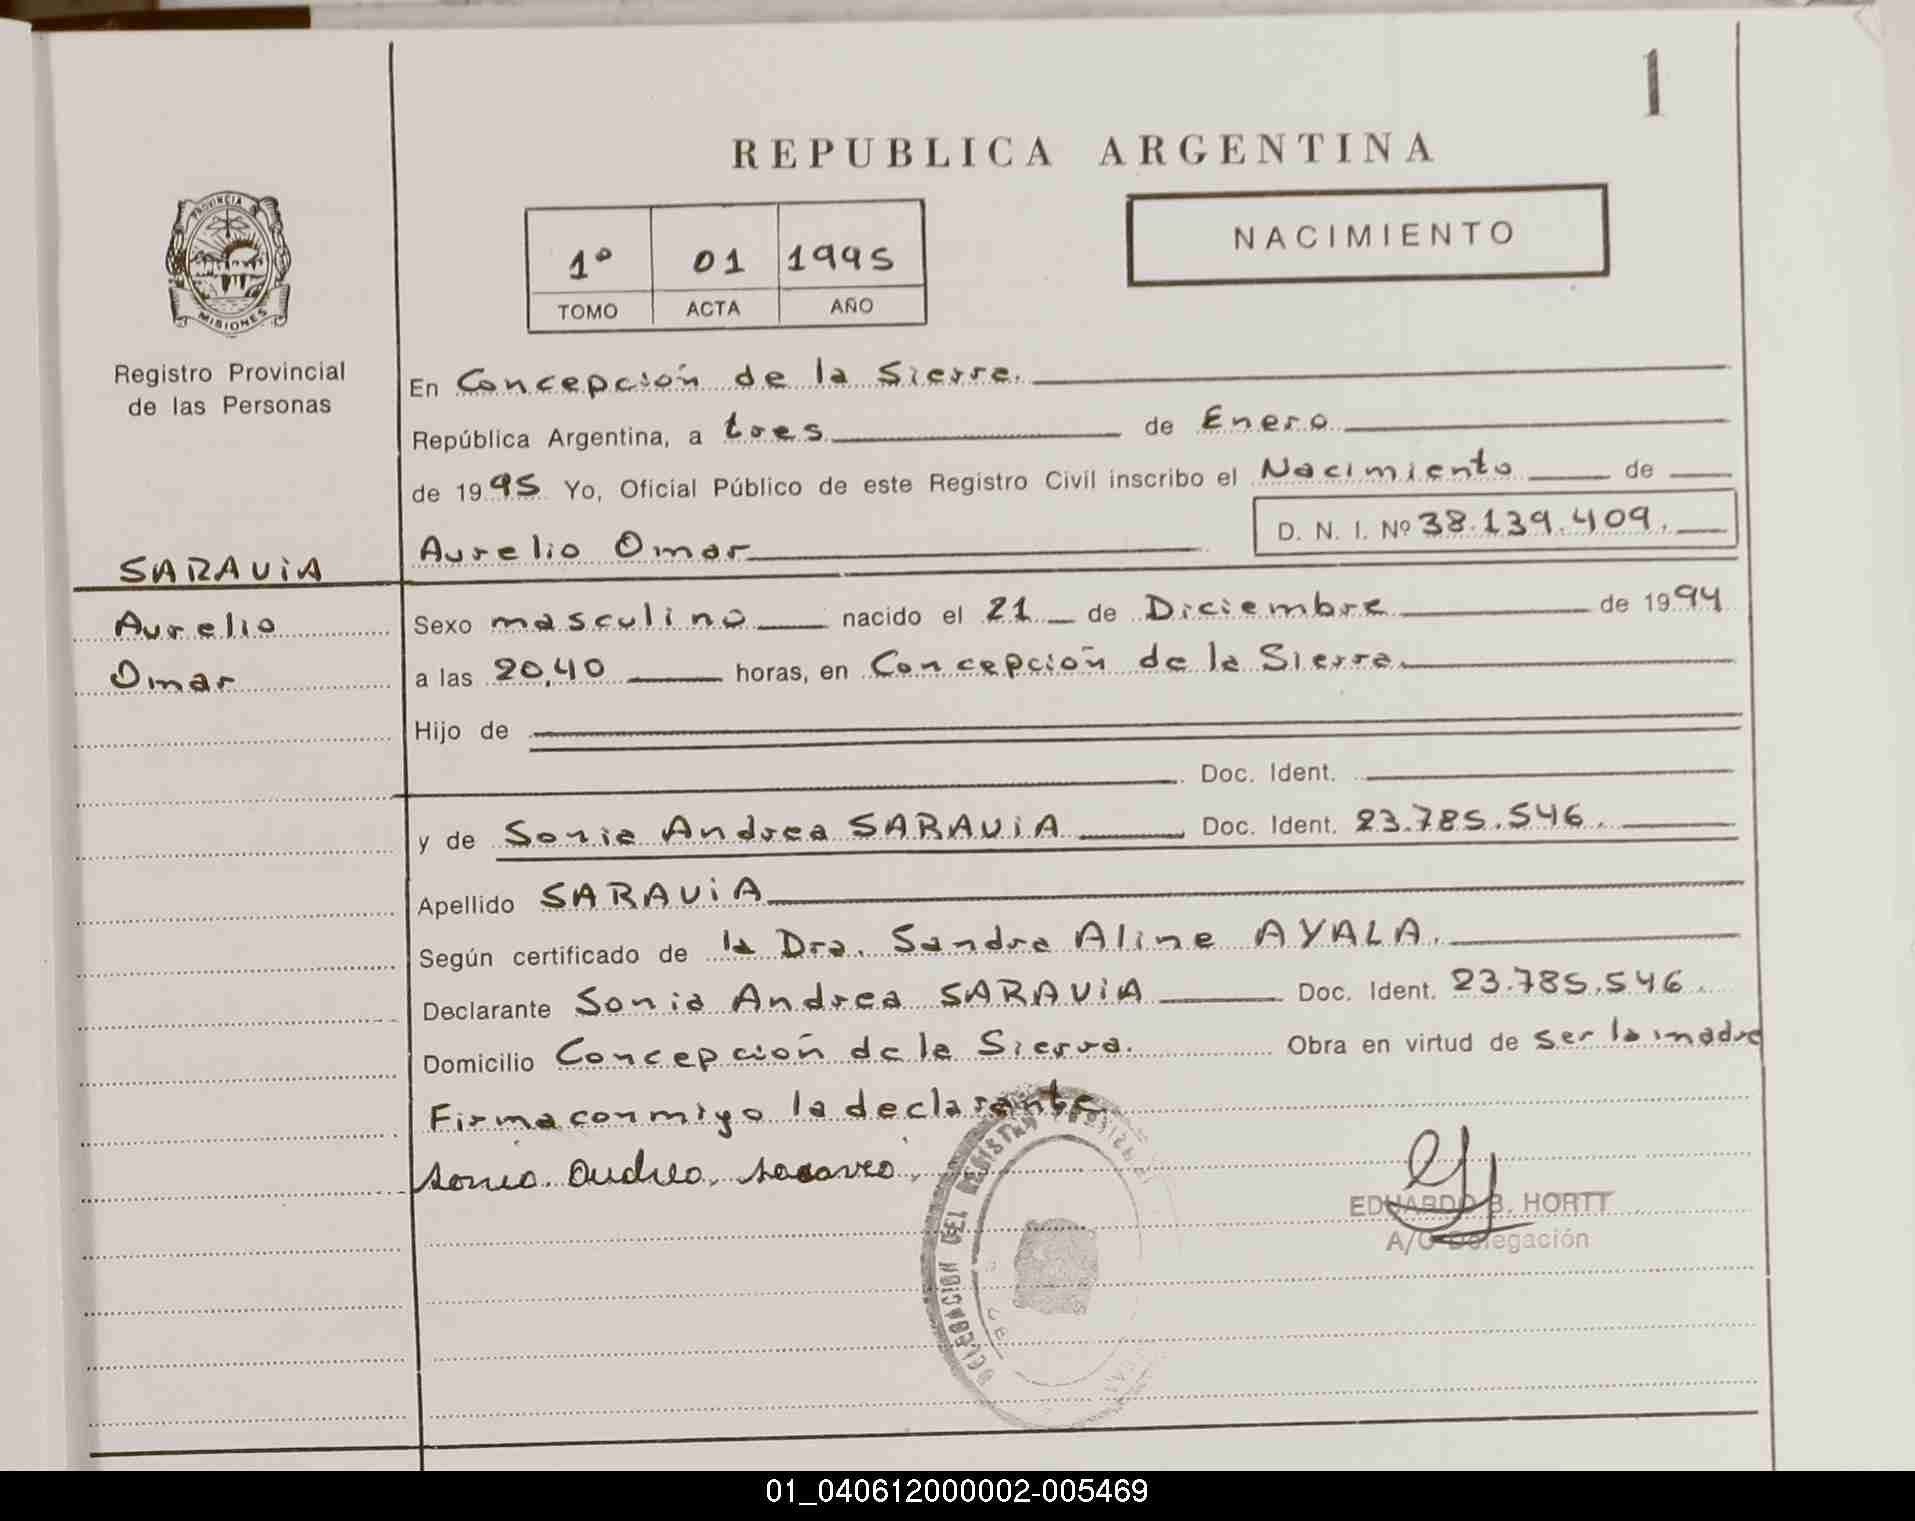 1
REPUBLICA ARGENTINA
PROVINCIA
MISIONES
1º 01 1995
TOMO ACTA AÑO
NACIMIENTO
Registro Provincial
de las Personas
En Concepción de la Sierra.
República Argentina, a tres de Enero
de 1995 Yo, Oficial Público de este Registro Civil inscribo el Nacimiento de
Aurelio Omar D. N. I. Nº 38.139.409.
SARAViA
Aurelio
Omar
Sexo masculino nacido el 21 de Diciembre de 1994
a las 20,40 horas, en Concepción de la Sierra.
Hijo de
Doc. Ident.
y de Sonia Andrea SARAViA Doc. Ident. 23.785.546.
Apellido SARAViA
Según certificado de la Dra. Sandra Aline AYALA.
Declarante Sonia Andrea SARAViA Doc. Ident. 23.785.546.
Domicilio Concepción de la Sierra. Obra en virtud de ser la madre
Firma conmigo la declarante
DELEGACION DEL REGISTRO
EDUARDO B. HORTT
A/C Delegación
01_040612000002-005469